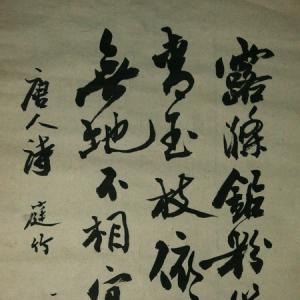 露滌鉛粉
青玉枝依
無地不相宜
唐人詩 庭竹